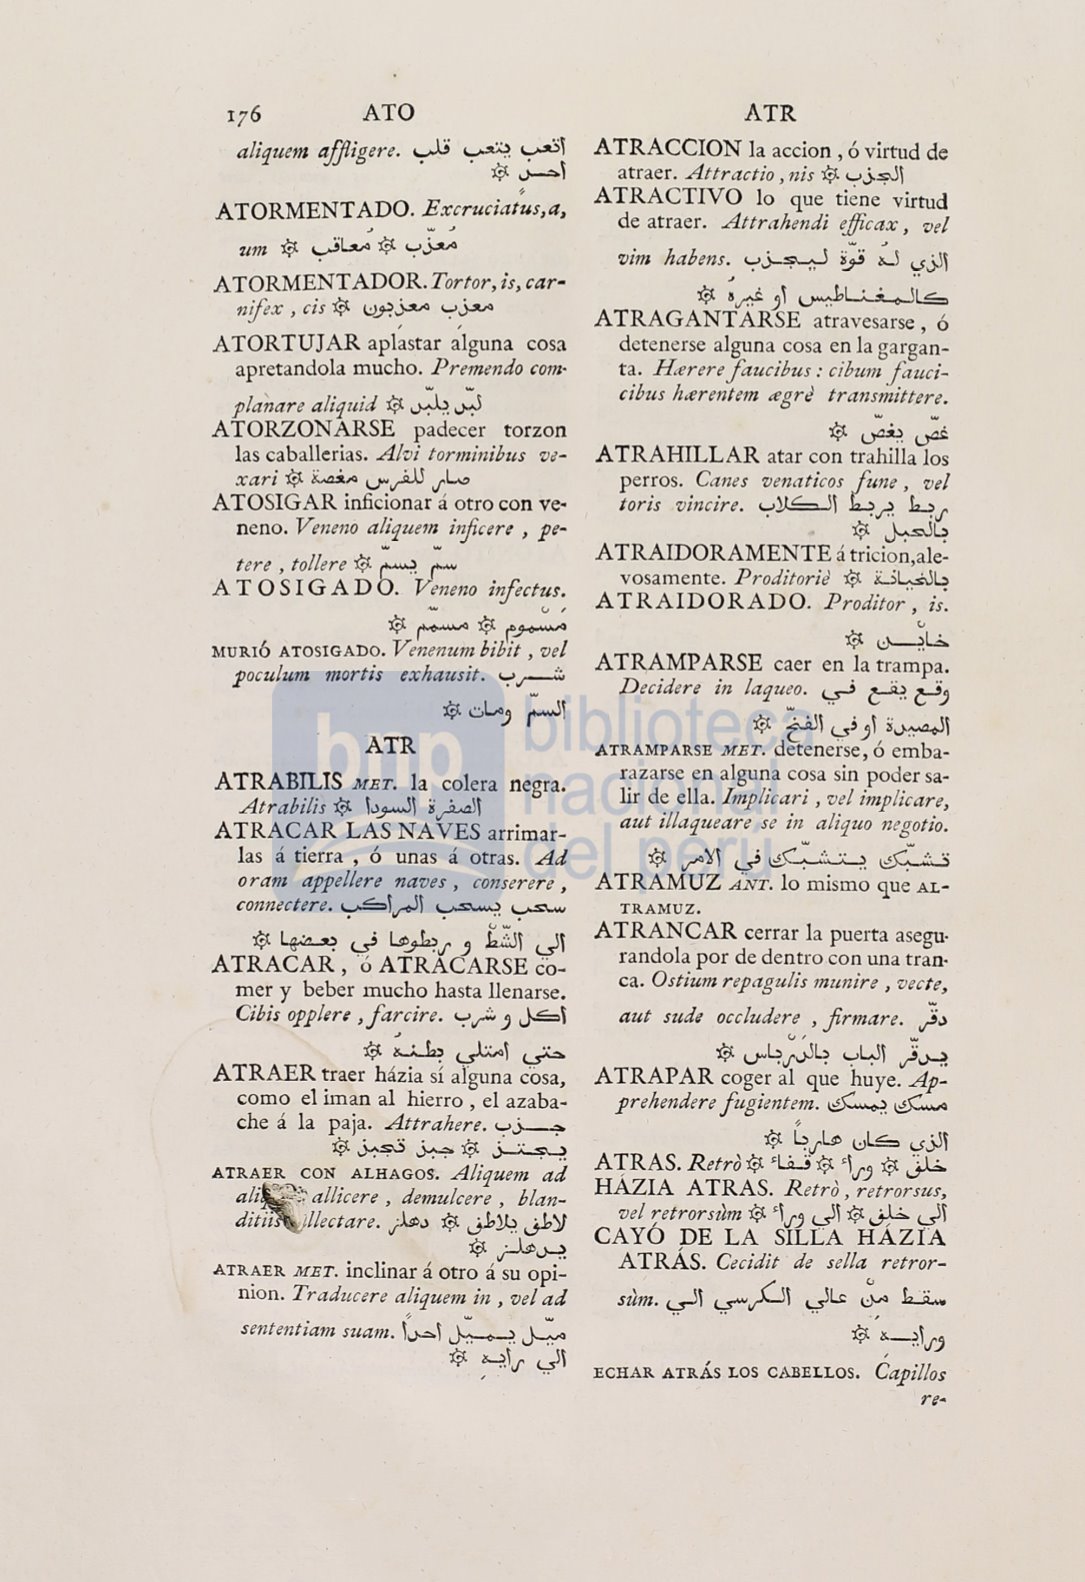 176 ATO
aliquem affligere. اتعب يتعب قلب
احسن ۞
ATORMENTADO. Excruciatus, a,
um ۞ معاقب ۞ معذّب
ATORMENTADOR. Tortor, is, car-
nifex, cis ۞ معزب معزبون
ATORTUJAR aplastar alguna cosa
apretandola mucho. Premendo com-
planare aliquid ۞ لبّس يلبّس
ATORZONARSE padecer torzon
las caballerias. Alvi torminibus ve-
xari ۞ صار للفرس مغصة
ATOSIGAR inficionar á otro con ve-
neno. Veneno aliquem inficere, pe-
tere, tollere ۞ سمّ يسمّ
ATOSIGADO. Veneno infectus.
مسموم ۞ مسمّم ۞
MURIÓ ATOSIGADO. Venenum bibit, vel
poculum mortis exhausit. شرب
السمّ ومات ۞
ATR
ATRABILIS MET. la colera negra.
Atrabilis ۞ الصفرة السودا
ATRACAR LAS NAVES arrimar-
las á tierra, ó unas á otras. Ad
oram appellere naves, conserere,
connectere. سحب يسحب المراكب
الي الشّطّ و ربطوها في بعضها ۞
ATRACAR, ó ATRACARSE co-
mer y beber mucho hasta llenarse.
Cibis opplere, farcire. اكل و شرب
حتي امتلي بطنهُ ۞
ATRAER traer házia sí alguna cosa,
como el iman al hierro, el azaba-
che á la paja. Attrahere. جزب
يجتنز ۞ جبز تجبز ۞
ATRAER CON ALHAGOS. Aliquem ad
allicere, demulcere, blan-
ditiis لاطف يلاطف ۞ دهلز
يدهلز ۞
ATRAER MET. inclinar á otro á su opi-
nion. Traducere aliquem in, vel ad
sententiam suam. ميّل يميّل احداً
الي رايه ۞
ATR
ATRACCION la accion, ó virtud de
atraer. Attractio, nis ۞ الجزب
ATRACTIVO lo que tiene virtud
de atraer. Attrahendi efficax, vel
vim habens. الزي لهُ قوّة ليجزب
كالمغناطيس او غيرهُ ۞
ATRAGANTARSE atravesarse, ó
detenerse alguna cosa en la gargan-
ta. Hærere faucibus: cibum fauci-
cibus hærentem ægrè transmittere.
غصّ يغصّ ۞
ATRAHILLAR atar con trahilla los
perros. Canes venaticos fune, vel
toris vincire. ربط يربط الكلاب
بالحبل ۞
ATRAIDORAMENTE á tricion, ale-
vosamente. Proditoriè ۞ بالخيانة
ATRAIDORADO. Proditor, is.
خاين ۞
ATRAMPARSE caer en la trampa.
Decidere in laqueo. وقع يقع في
المصيدة او في الفخّ ۞
ATRAMPARSE MET. detenerse, ó emba-
razarse en alguna cosa sin poder sa-
lir de ella. Implicari, vel implicare,
aut illaqueare se in aliquo negotio.
تشبّك يتشبّك في الامر ۞
ATRAMUZ ANT. lo mismo que AL-
TRAMUZ.
ATRANCAR cerrar la puerta asegu-
randola por de dentro con una tran-
ca. Ostium repagulis munire, vecte,
aut sude occludere, firmare. دقّر
يدقّر الباب بالدّرباس ۞
ATRAPAR coger al que huye. Ap-
prehendere fugientem. مسك يمسك
الزي كان هارباً ۞
ATRAS. Retrò ۞ خلف ۞ وراء ۞ قفاء
HÁZIA ATRAS. Retrò, retrorsus,
vel retrorsùm ۞ الي خلف ۞ الي وراء
CAYÓ DE LA SILLA HÁZIA
ATRÁS. Cecidit de sella retror-
sùm. سقط من عالي الكرسي الي
ورايه ۞
ECHAR ATRÁS LOS CABELLOS. Capillos
re-
biblioteca
nacional
del perú
bnp